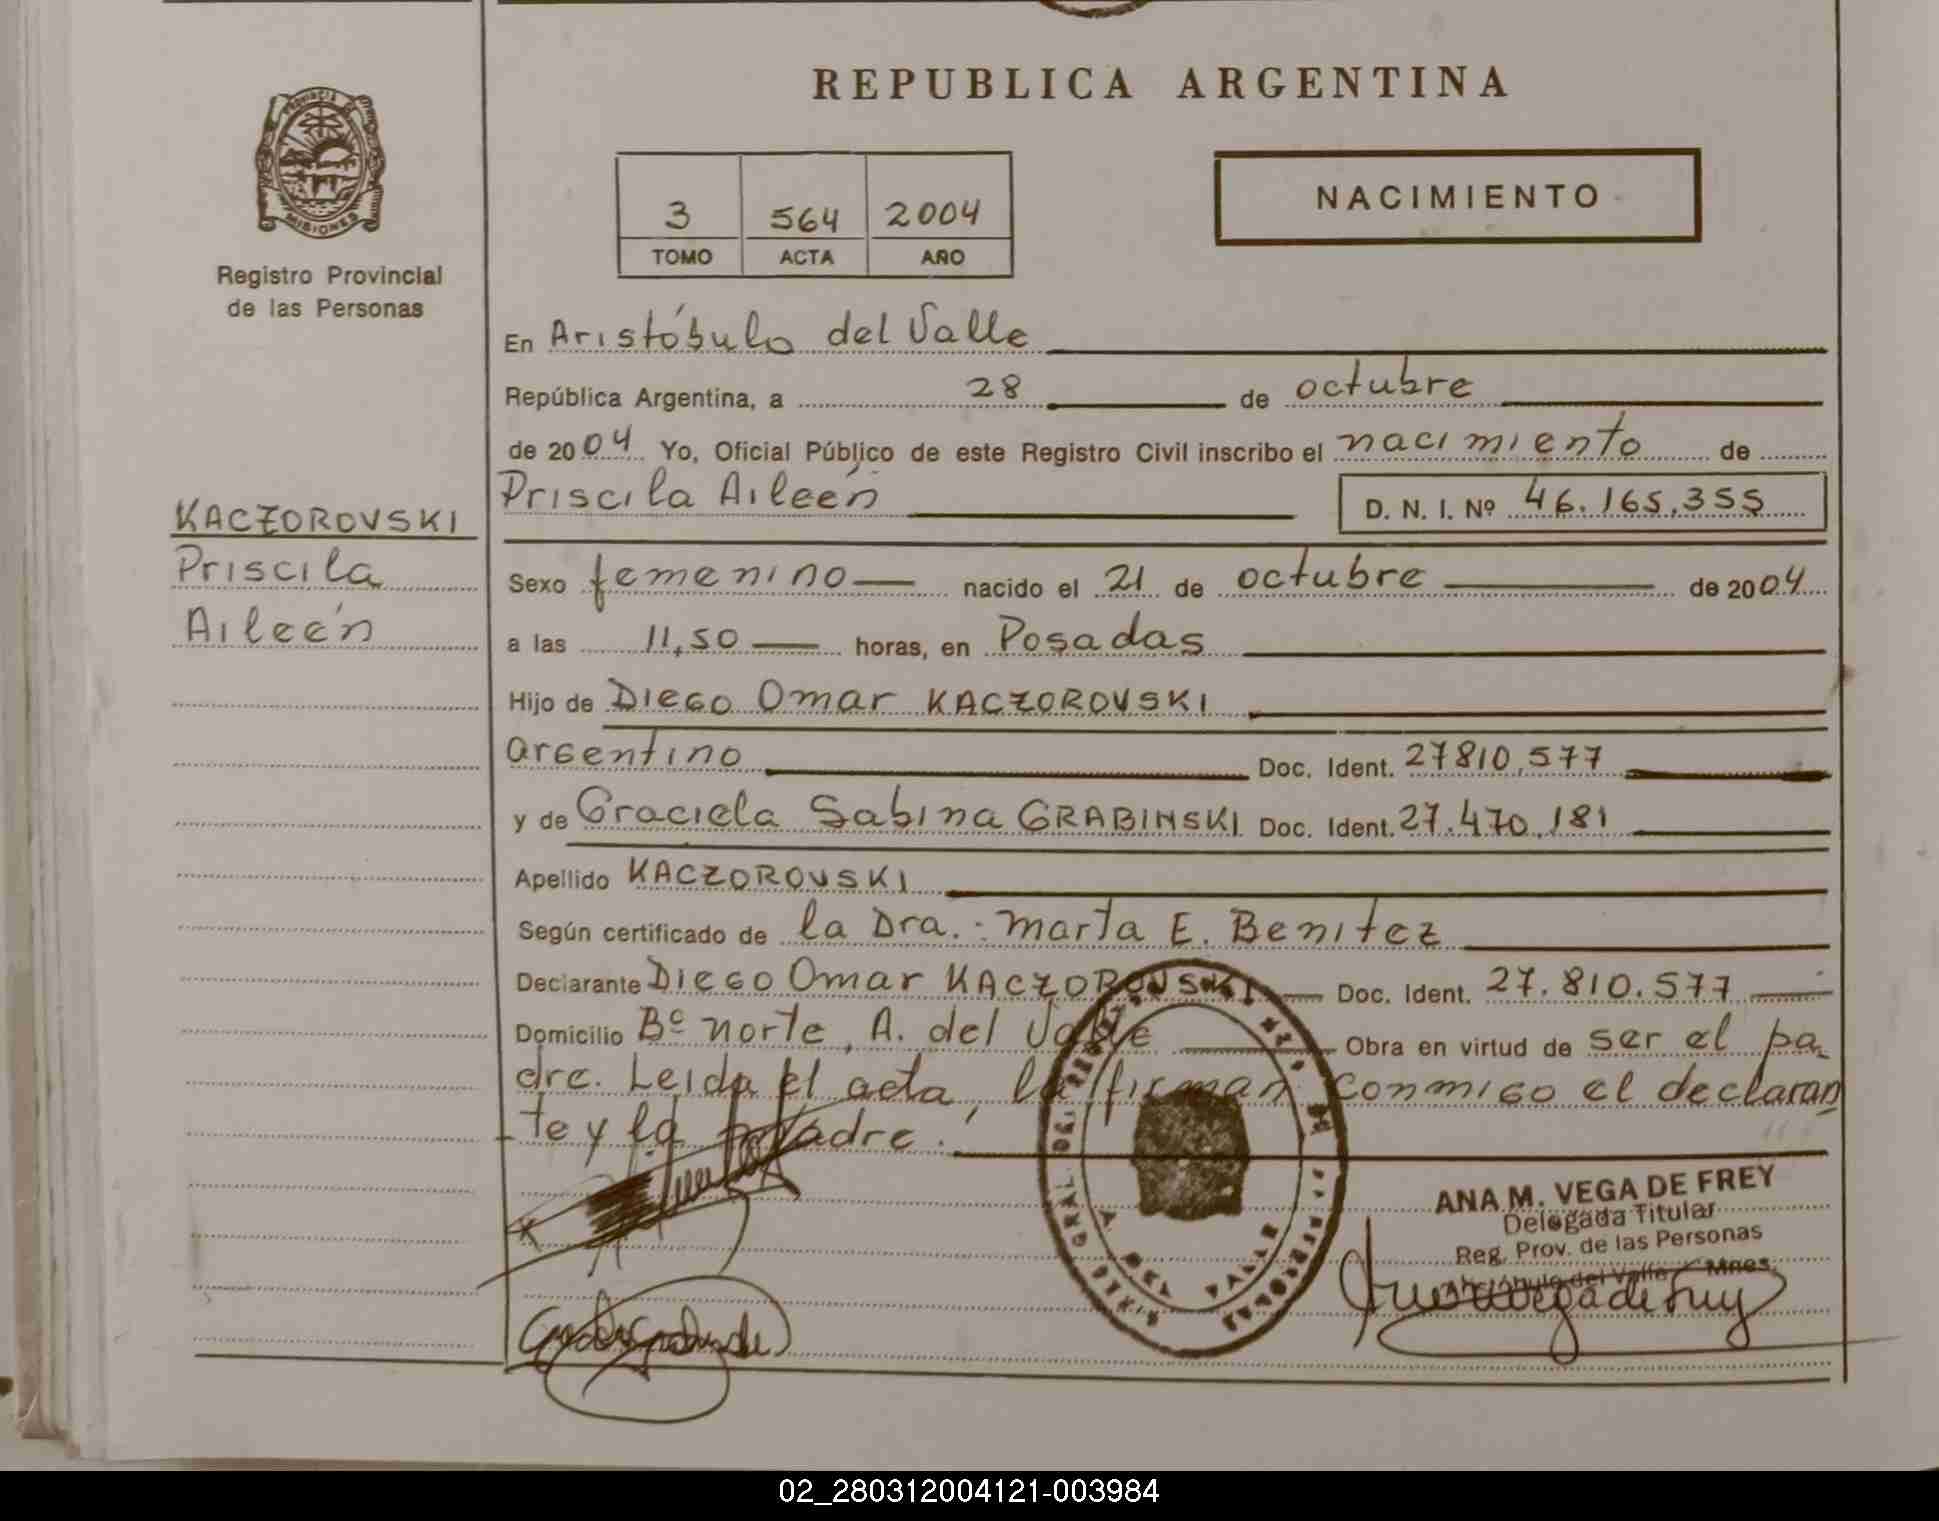 REPUBLICA ARGENTINA
PROVINCIA
MISIONES
Registro Provincial
de las Personas
3 564 2004
TOMO ACTA AÑO
NACIMIENTO
En Aristóbulo del Valle
República Argentina, a 28 de octubre
de 2004 Yo, Oficial Público de este Registro Civil inscribo el nacimiento de
Priscila Aileén D. N. I. Nº 46.165.355
KACZOROVSKI
Priscila
Aileén
Sexo femenino nacido el 21 de octubre de 2004
a las 11,50 horas, en Posadas
Hijo de Diego Omar KACZOROVSKI
argentino Doc. Ident. 27810.577
y de Graciela Sabina GRABINSKI Doc. Ident. 27.470.181
Apellido KACZOROVSKI
Según certificado de la Dra.: Marta E. Benitez
Declarante Diego Omar KACZOROVSKI Doc. Ident. 27.810.577
Domicilio Bº norte, A. del Valle Obra en virtud de ser el pa-
dre. Leida el acta, la firman conmigo el declaran
-te y la madre.
A DEL VALLE
ANA M. VEGA DE FREY
Delegada Titular
Reg. Prov. de las Personas
Aristóbulo del Valle - Mnes.
02_280312004121-003984